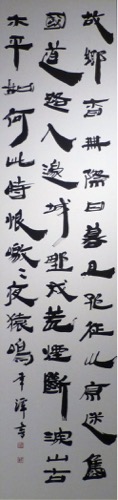 故鄉杳無際日暮且孤征川原迷舊
國道路入邊城野戍荒煙斷深山古
木平如何此時恨噭〻夜猿鳴